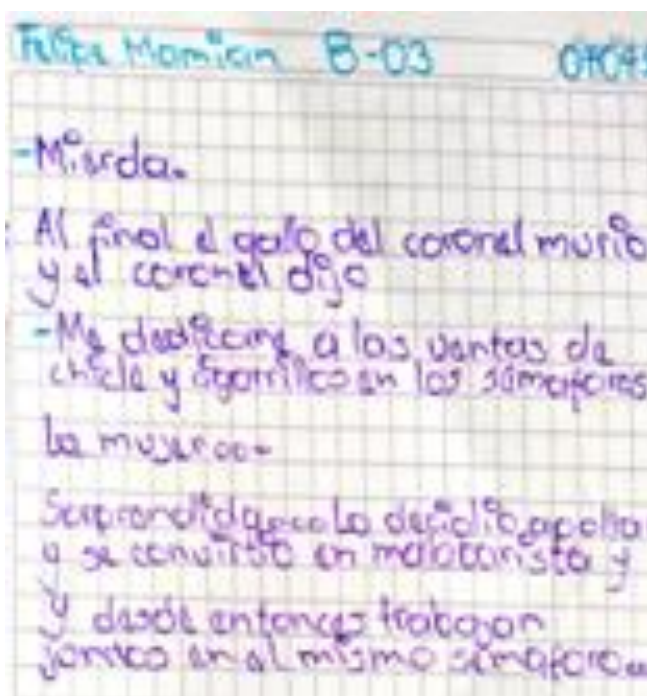 Felipe B-03
-Mierda.
Al final el gallo del coronel murio
y el coronel dijo
-Me dedicare a las ventas de
chicle y sigarrillos en los semaforos
La mujer...
Sorprendida... Lo decidio apollar
y se convirtio en malabarista y
y desde entonces trabajan
juntos en el mismo semaforo...